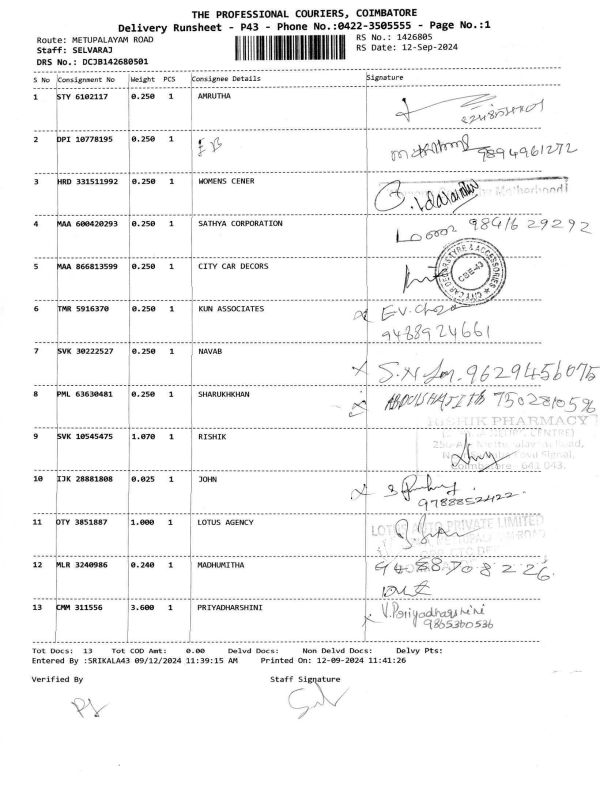 THE PROFESSIONAL COURIERS, COIMBATORE
Delivery Runsheet - P43 - Phone No.:0422-3505555 - Page No.:1
Route: METUPALAYAM ROAD
RS No.: 1426805
Staff: SELVARAJ
RS Date: 12-Sep-2024
DRS No.: DCJB142680501
S No Consignment No Weight PCS Consignee Details Signature
1 STY 6102117 0.250 1 AMRUTHA
2 DPI 10778195 0.250 1
9894961272
3 HRD 331511992 0.250 1 WOMENS CENER
Motherhood
4 MAA 600420293 0.250 1 SATHYA CORPORATION
98416 29292
5 MAA 866813599 0.250 1 CITY CAR DECORS
CITY CAR DECORS TYRE & ACCESSORIES
CBE-43
6 TMR 5916370 0.250 1 KUN ASSOCIATES
9488924661
7 SVK 30222527 0.250 1 NAVAB
9629456075
8 PML 63630481 0.250 1 SHARUKHKHAN
ABDULSHAJITH 7502810596
RISHIK PHARMACY
9 SVK 10545475 1.070 1 RISHIK
641 043.
10 IJK 28881808 0.025 1 JOHN
9788852422
11 OTY 3851887 1.000 1 LOTUS AGENCY
LOTUS AUTO PRIVATE LIMITED
12 MLR 3240986 0.240 1 MADHUMITHA
9488708226
out
13 CMM 311556 3.600 1 PRIYADHARSHINI
V.Poriyadharshini
9865360536
Tot Docs: 13 Tot COD Amt: 0.00 Delvd Docs: Non Delvd Docs: Delvy Pts:
Entered By :SRIKALA43 09/12/2024 11:39:15 AM Printed On: 12-09-2024 11:41:26
Verified By Staff Signature